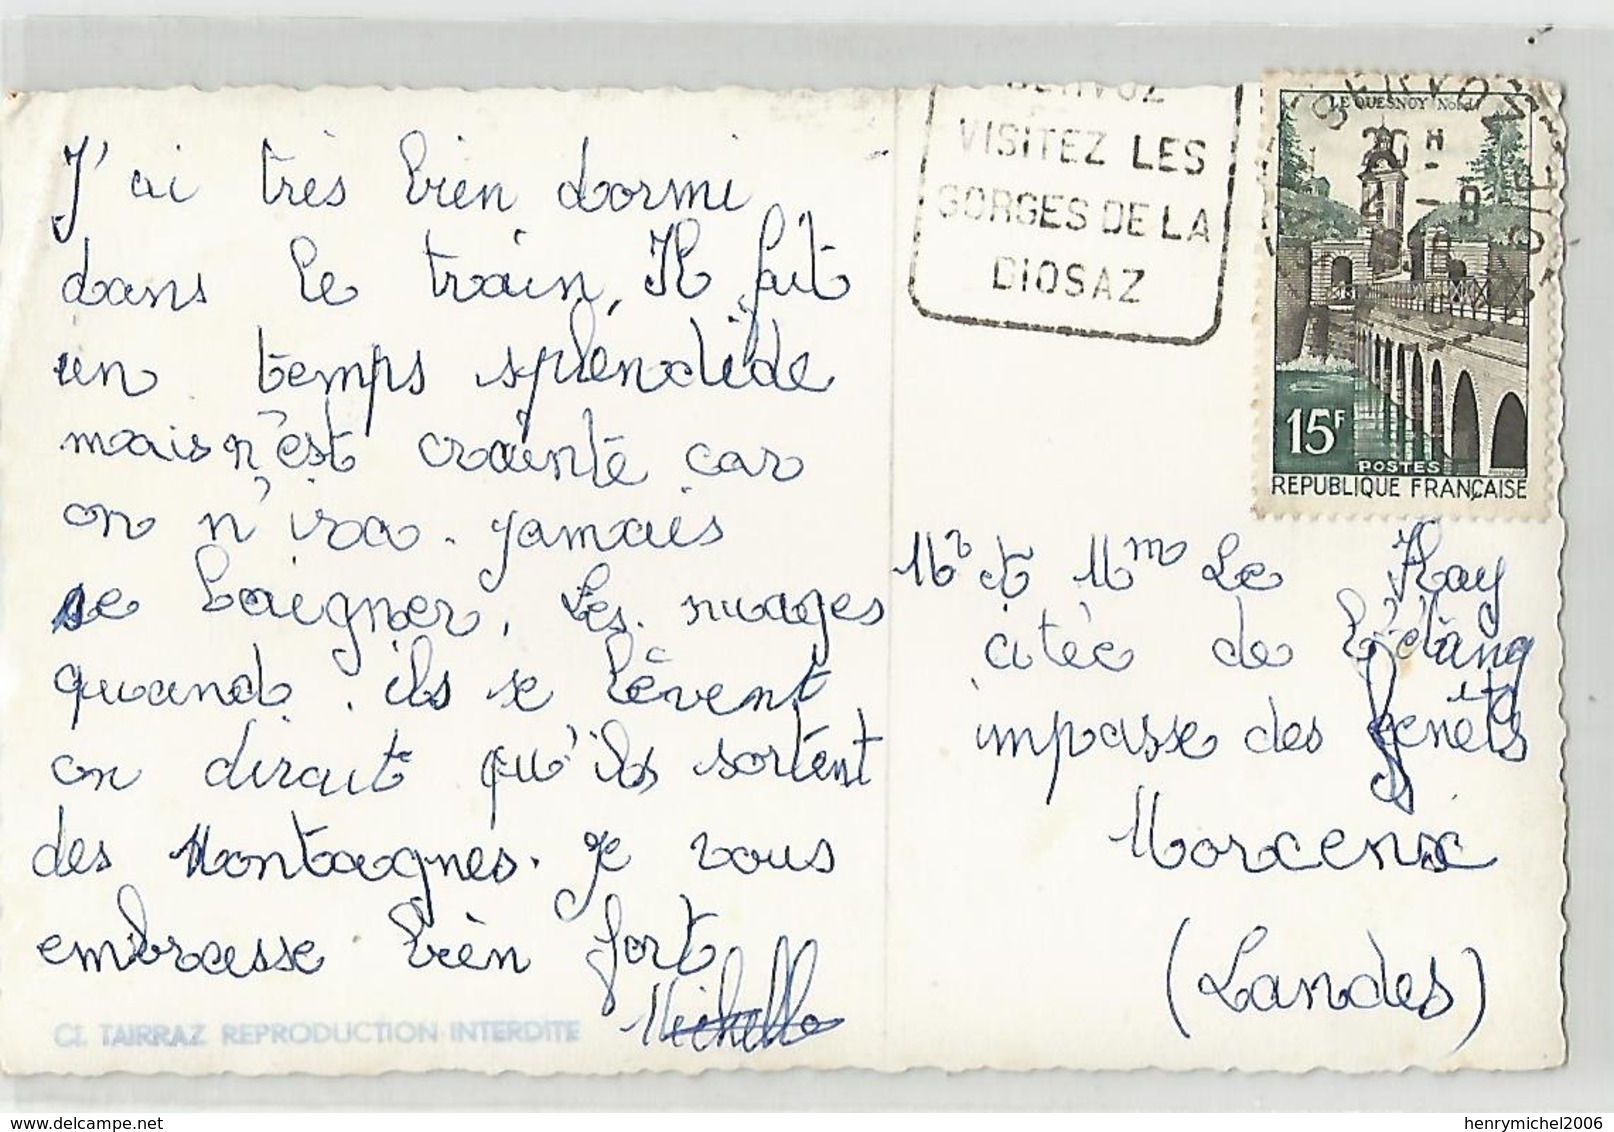 J'ai très bien dormi
dans le train, Il fait
un temps splendide
mais n'est crainte car
on n'ira jamais
se baigner, Les nuages
quand ils se lèvent
on dirait qu'ils sortent
des Montagnes. Je vous
embrasse bien fort
Michelle
Cl. TAIRRAZ REPRODUCTION INTERDITE
SERVOZ
VISITEZ LES
GORGES DE LA
DIOSAZ
LE QUESNOY (Nord)
15F
POSTES
REPUBLIQUE FRANÇAISE
Mr et Mm Le Hay
citée de l'étang
impasse des genêts
Morcenx
(Landes)
henrymichel2006